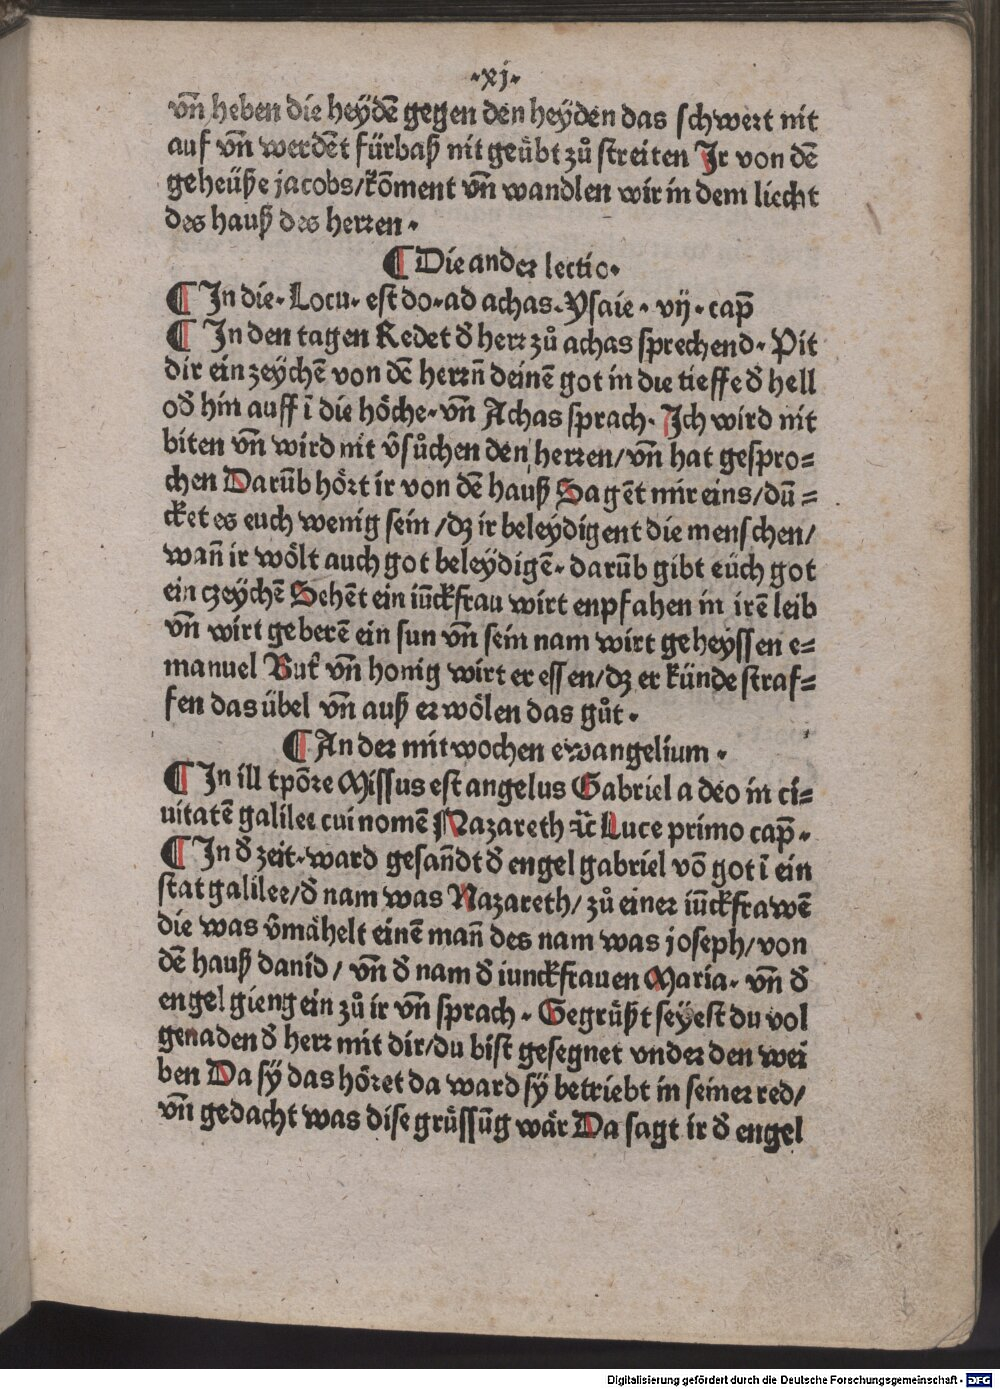 ·xj·
vn̄ heben die heÿdē gegen den heÿden das schwert nit
auf vn̄ werdēt fürbaß nit geübt zů streiten Jr von dē
geheüße jacobs/kōment vn̄ wandlen wir in dem liecht
des hauß des herren·
¶ Die ander lectio·
¶ In die· Locu· est do· ad achas· Ysaie· vij· cap̄
¶ In den tagen Redet d̄ herr zů achas sprechend· Pit
dir ein zeychē von dē herrn̄ deinē got in die tieffe d̄ hell
od̄ hin auff ī die höche· vn̄ Achas sprach· Jch wird nit
biten vn̄ wird nit v̄sůchen den herren/vn̄ hat gespro=
chen Darūb hört ir von dē hauß Sagēt mir eins/dū=
cket es euch wenig sein/dz ir beleÿdigent die menschen/
wan̄ ir wölt auch got beleÿdigē· darūb gibt eüch got
ein czeÿchē Sehēt ein iūckfrau wirt enpfahen in irē leib
vn̄ wirt geberē ein sun vn̄ sein nam wirt geheÿssen e=
manuel But̄ vn̄ honig wirt er essen/dz er künde straf=
fen das übel vn̄ auß erwölen das gůt·
¶ An der mitwochen ewangelium·
¶ In ill tpōre Missus est angelus Gabriel a deo in ci=
uitatē galilee cui nomē Nazareth ⁊c̄ Luce primo cap̄·
¶ In d̄ zeit· ward gesan̄dt d̄ engel gabriel vō got ī ein
stat galilee/d̄ nam was Nazareth/ zů einer iūckfrawē
die was v̄mähelt einē man̄ des nam was joseph/von
dē hauß danid/ vn̄ d̄ nam d̄ iunckfrauen Maria· vn̄ d̄
engel gieng ein zů ir vn̄ sprach· Gegrüßt seÿest du vol
genaden d̄ herr mit dir/du bist gesegnet vnder den wei
ben Da sÿ das höret da ward sÿ betriebt in seiner red/
vn̄ gedacht was dise grüssūg wär Da sagt ir d̄ engel
Digitalisierung gefördert durch die Deutsche Forschungsgemeinschaft - DFG